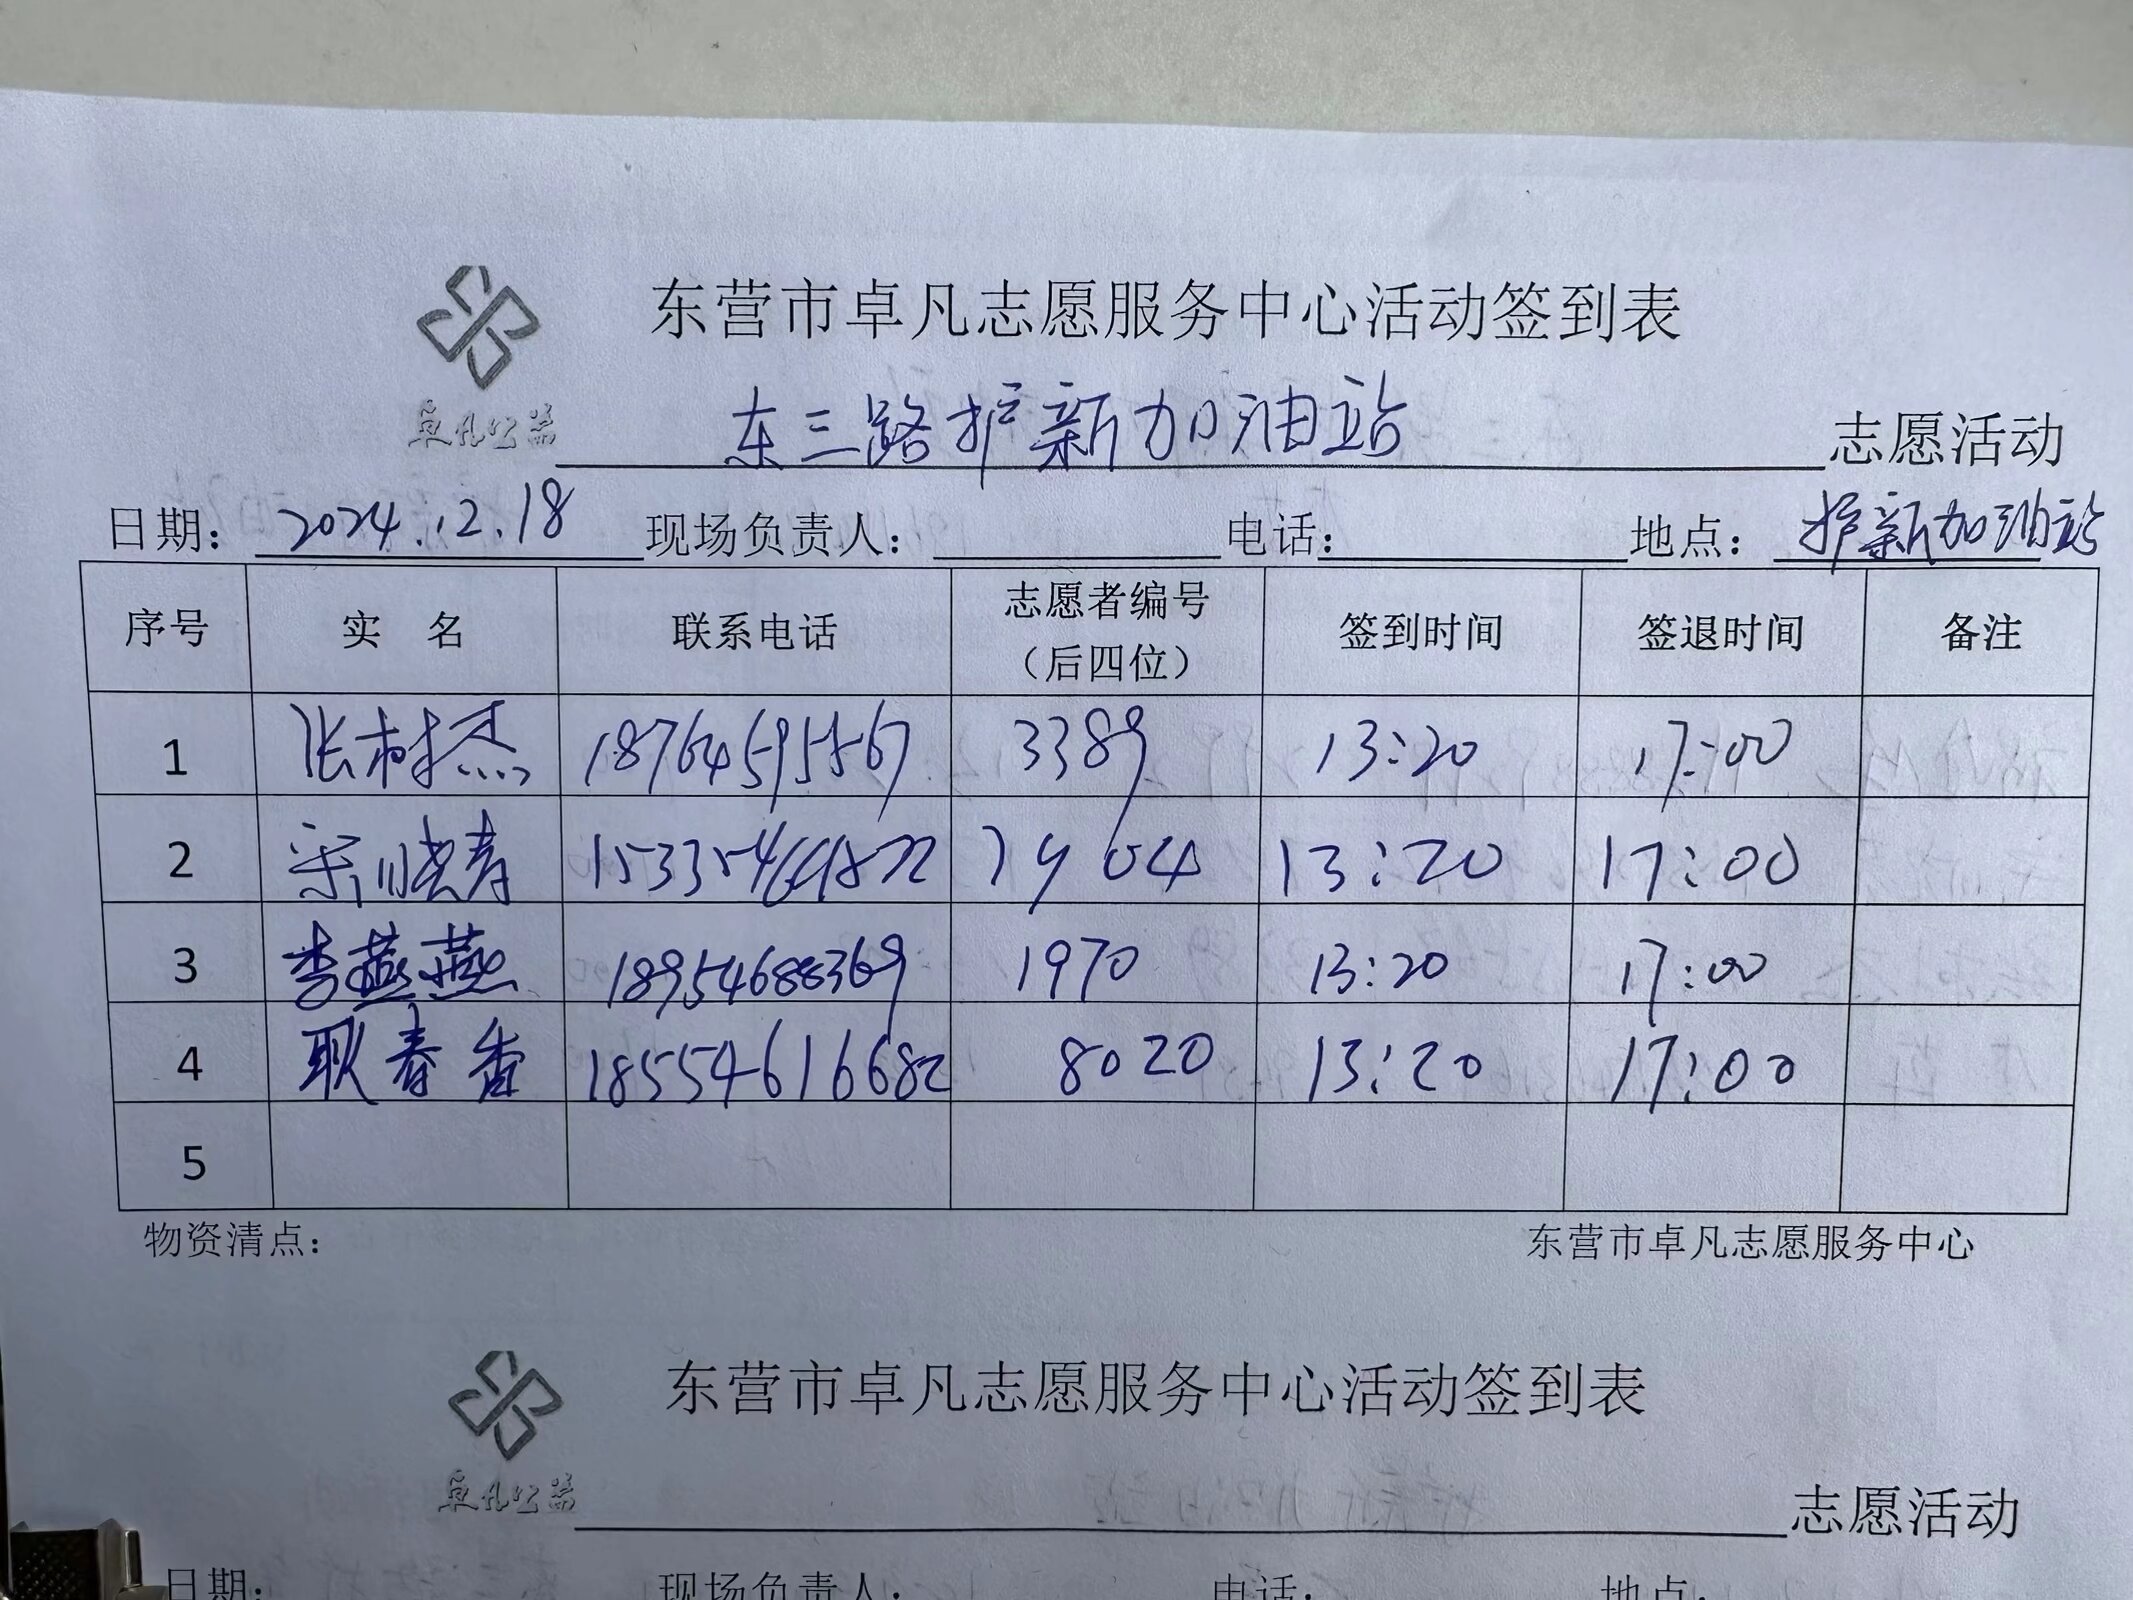 东营市卓凡志愿服务中心活动签到表
卓凡公益
东三路护新加油站 志愿活动
日期： 2024.12.18 现场负责人： 电话： 地点： 护新加油站
序号 实 名 联系电话 志愿者编号（后四位） 签到时间 签退时间 备注
1 张树杰 18764595567 3389 13:20 17:00
2 7904 13:20 17:00
3 李燕燕 18954688369 1970 13:20 17:00
4 耿春香 18554616682 8020 13:20 17:00
5
物资清点： 东营市卓凡志愿服务中心
东营市卓凡志愿服务中心活动签到表
卓凡公益
志愿活动
日期： 现场负责人： 电话： 地点：